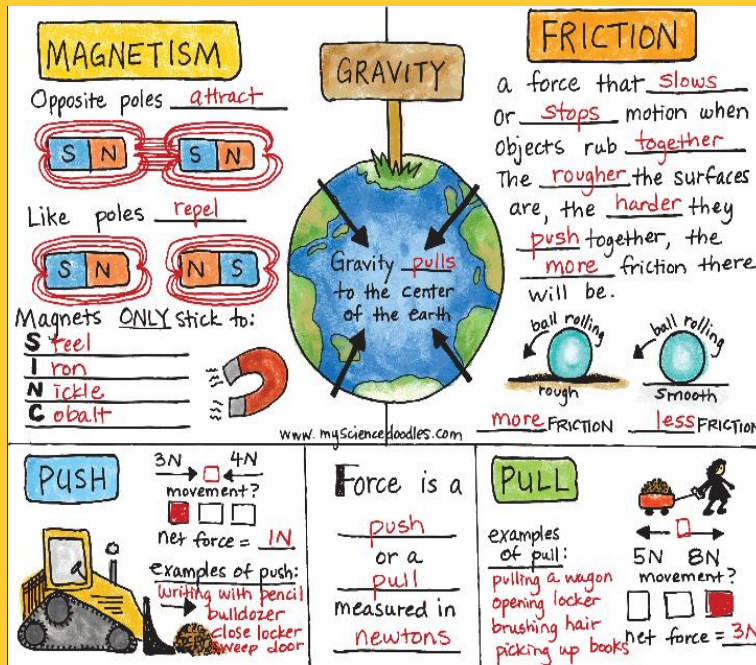 MAGNETISM
Opposite poles attract
S N S N
Like poles repel
S N N S
Magnets ONLY stick to:
Steel
Iron
Nickle
Cobalt
GRAVITY
Gravity pulls
to the center
of the earth
www.mysciencedoodles.com
FRICTION
a force that slows
or stops motion when
objects rub together
The rougher the surfaces
are, the harder they
push together, the
more friction there
will be.
ball rolling ball rolling
rough smooth
more FRICTION less FRICTION
PUSH
3N 4N
movement?
net force = 1N
examples of push:
writing with pencil
bulldozer
close locker
sweep door
Force is a
push
or a
pull
measured in
newtons
PULL
examples
of pull:
pulling a wagon
opening locker
brushing hair
picking up books
5N 8N
movement?
net force = 3N